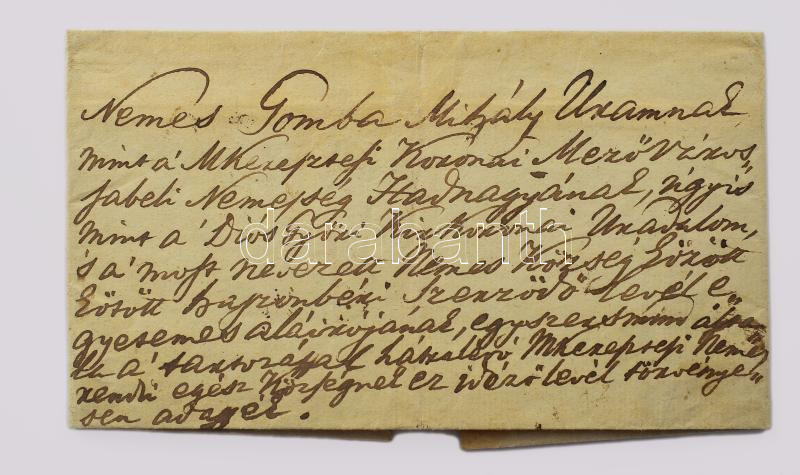 Nemes Gomba Mihály Uramnak,
mint a' MKereptesi Koronai MezőVáros„
fabeli Nemesség Hadnagyának, úgyis
mint a' Diós Győri Kir Koronai Uradalom,
s a' most nevezett Nemes Község között
kötött haszonbéri Szerződő levél e„
gyetemes aláírójának, egyszersmind
a' tartozással hátralévő MKereptesi Nemes
rendű egész Községnek ez idéző levél törvénye„
sen adassék.
darabanth